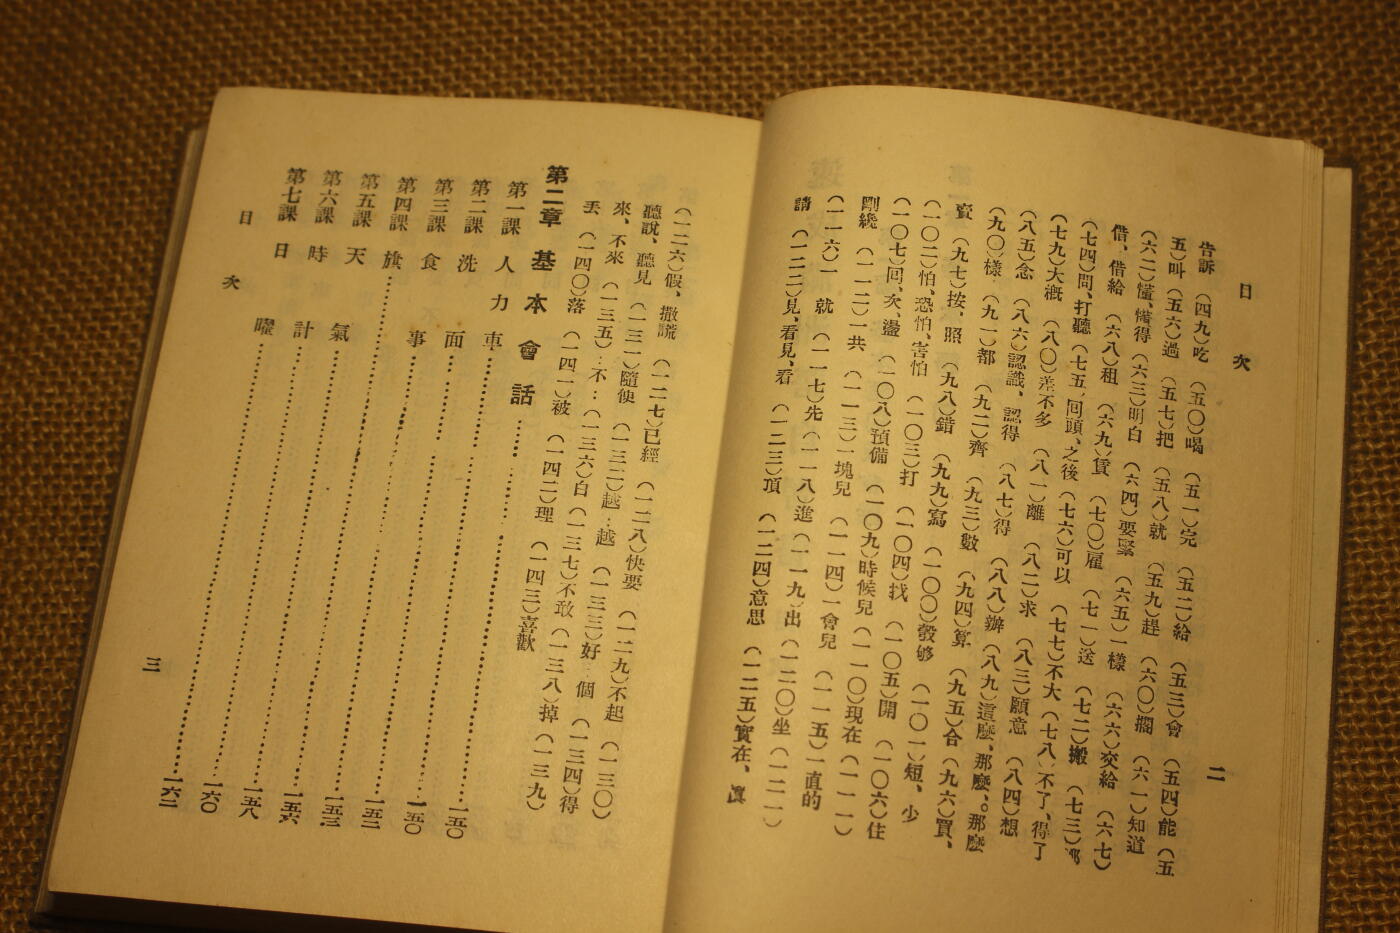 目次
二
告訴 (四九)吃 (五〇)喝 (五一)完 (五二)給 (五三)會 (五四)能 (五
五)叫 (五六)過 (五七)把 (五八)就 (五九)趕 (六〇)擱 (六一)知道
(六二)懂、懂得 (六三)明白 (六四)要緊 (六五)一樣 (六六)交給 (六七)
借、借給 (六八)租 (六九)賃 (七〇)雇 (七一)送 (七二)搬 (七三)
(七四)問、打聽 (七五)回頭、之後 (七六)可以 (七七)不大 (七八)不了、得了
(七九)大槪 (八〇)差不多 (八一)離 (八二)求 (八三)願意 (八四)想
(八五)念 (八六)認識、認得 (八七)得 (八八)辦 (八九)這麼、那麼。那麼
(九〇)樣 (九一)都 (九二)齊 (九三)數 (九四)算 (九五)合 (九六)買、
賣 (九七)按、照 (九八)錯 (九九)寫 (一〇〇)彀够 (一〇一)短、少
(一〇二)怕、恐怕、害怕 (一〇三)打 (一〇四)找 (一〇五)開 (一〇六)住
(一〇七)回、次、盪 (一〇八)預備 (一〇九)時候兒 (一一〇)現在 (一一一)
剛纔 (一一二)一共 (一一三)一塊兒 (一一四)一會兒 (一一五)一直的
(一一六)一 就 (一一七)先 (一一八)進 (一一九)出 (一二〇)坐 (一二一)
請 (一二二)見、看見、看 (一二三)頂 (一二四)意思 (一二五)實在、眞
(一二六)假、撒謊 (一二七)已經 (一二八)快要 (一二九)不起 (一三〇)
聽說、聽見 (一三一)隨便 (一三二)越…越 (一三三)好 個 (一三四)得
來、不來 (一三五)…不… (一三六)白 (一三七)不敢 (一三八)掉 (一三九)
丢 (一四〇)落 (一四一)被 (一四二)理 (一四三)喜歡
第二章 基本會話……
第一課 人力車……一五〇
第二課 洗面……一五〇
第三課 食事……一五二
第四課 旗……一五三
第五課 天氣……一五六
第六課 時計……一五八
第七課 日曜……一六〇
一六二
目次
三